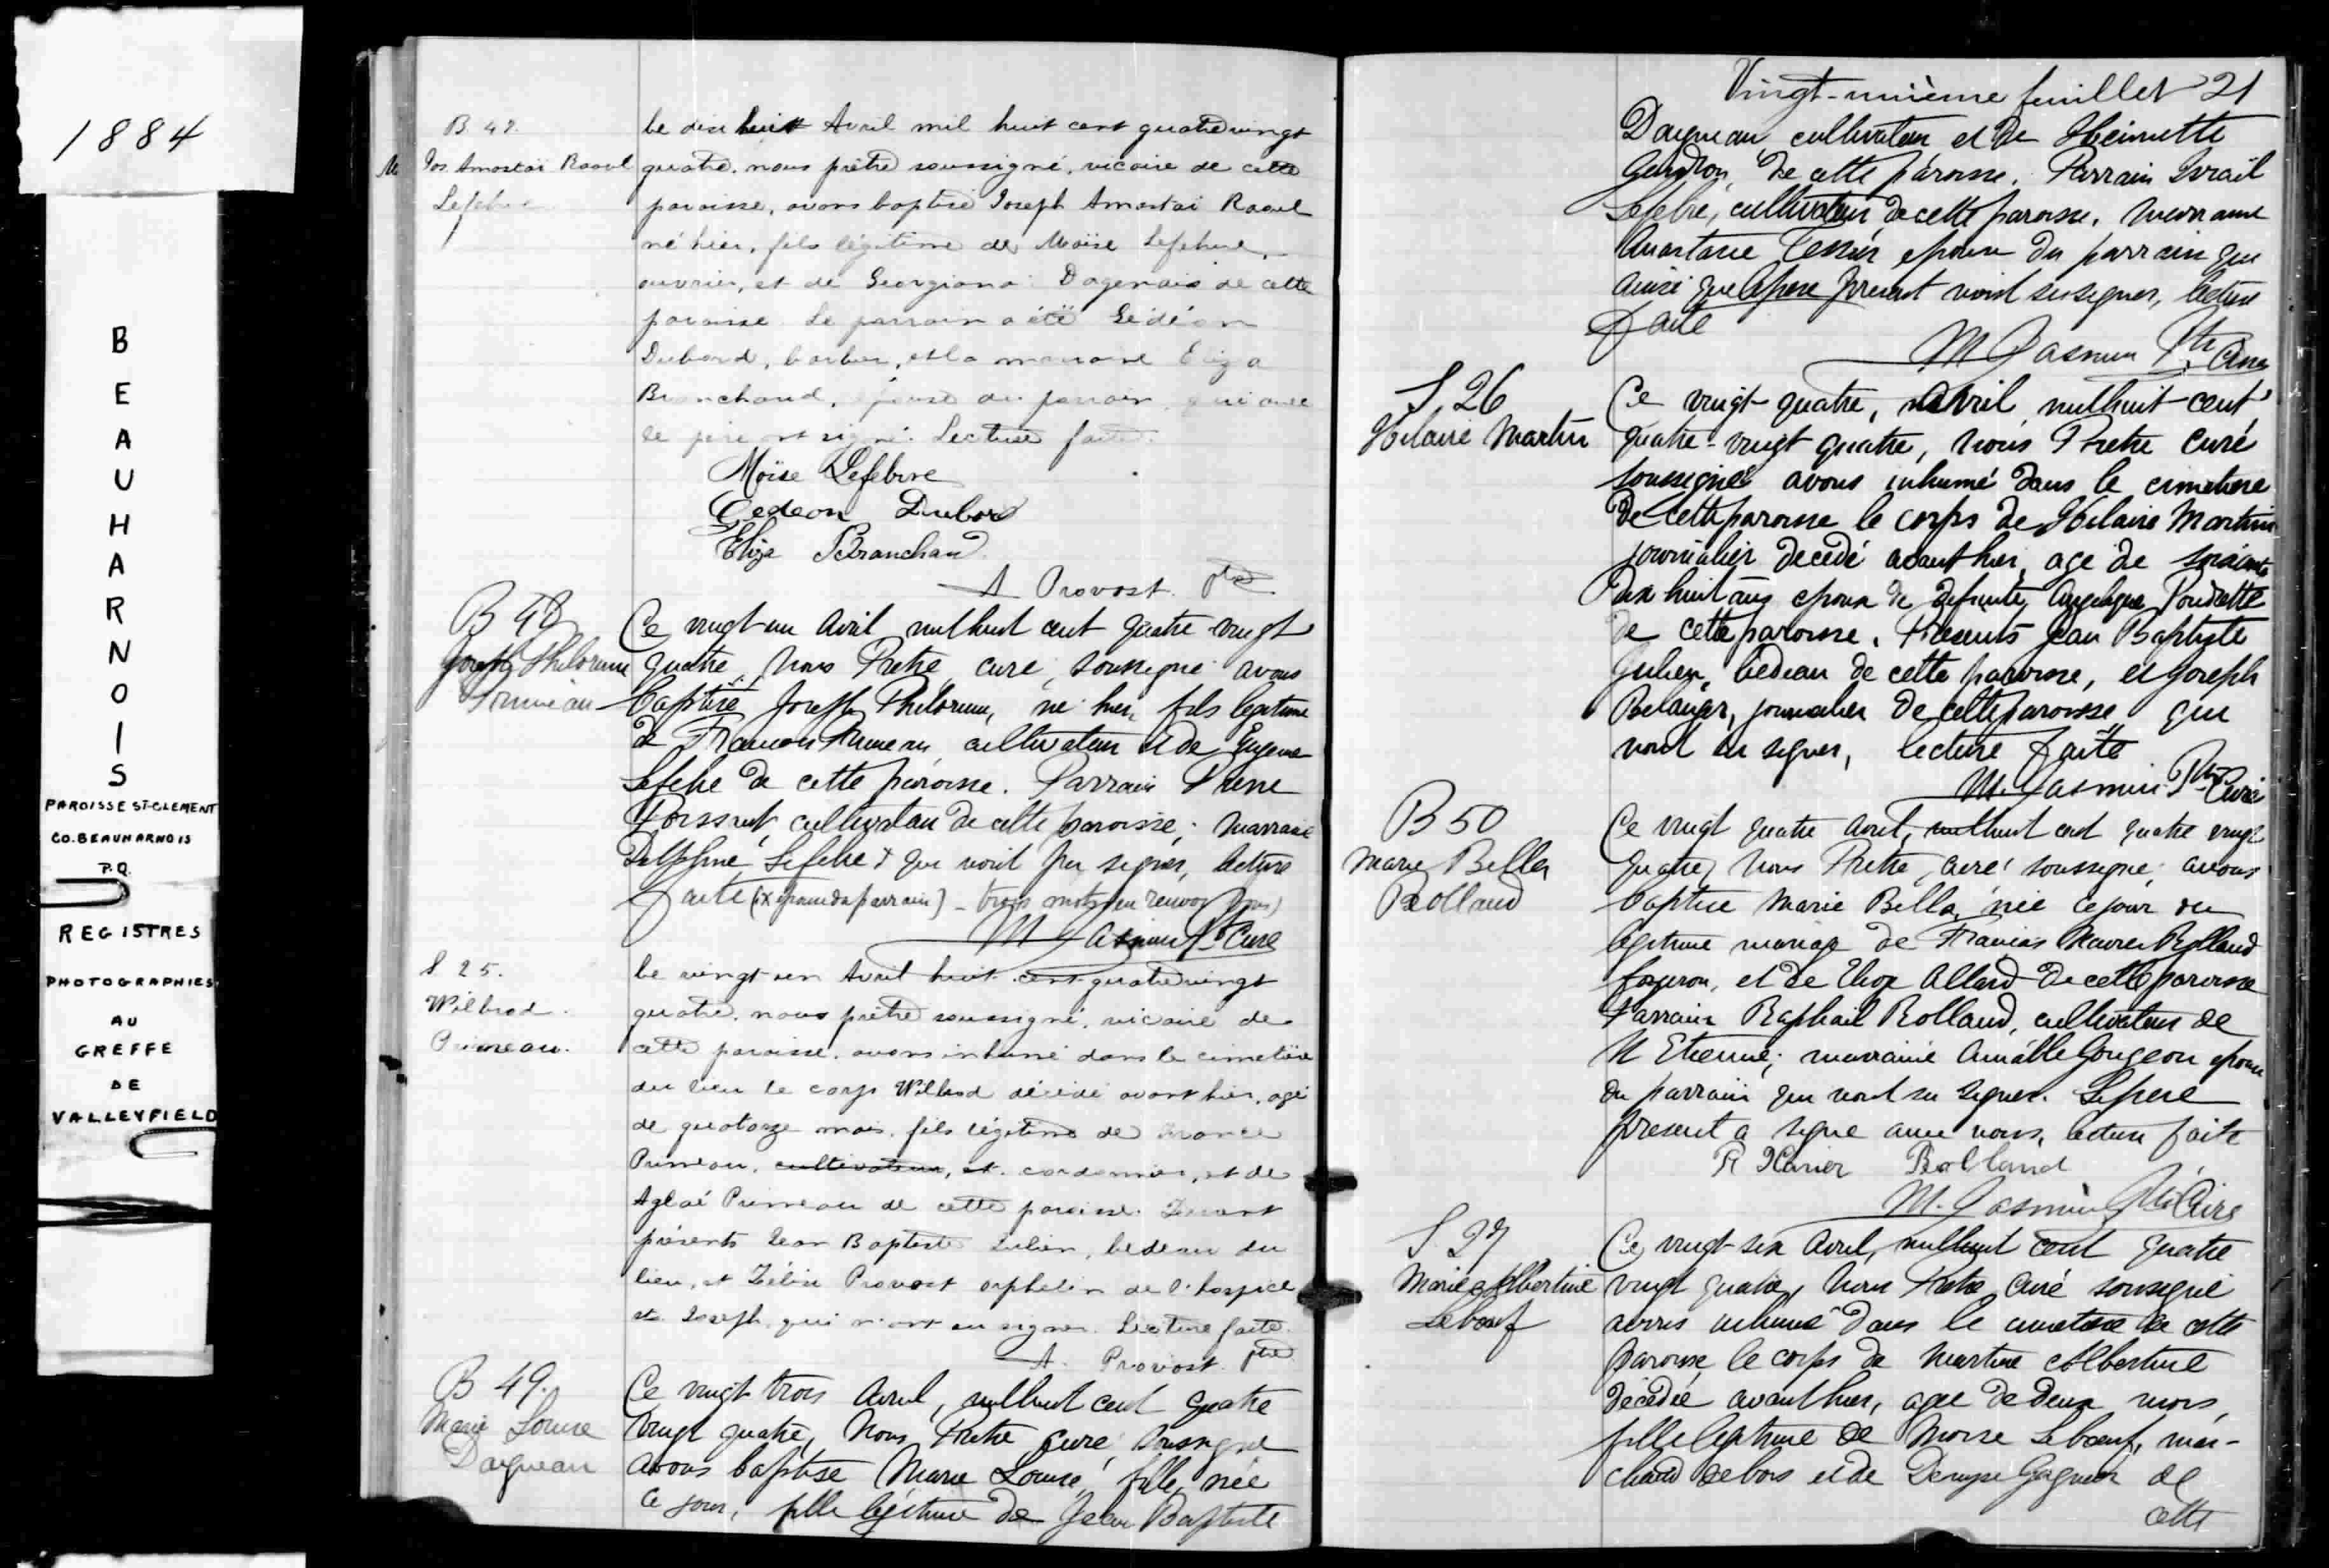 1884
BEAUHARNOIS
PAROISSE ST-CLEMENT
CO. BEAUHARNOIS
P.Q.
REGISTRES
PHOTOGRAPHIES
AU
GREFFE
DE
VALLEYFIELD
B 47.
Jos. Amostaï Raoul
Lefebvre
Le dix huit Avril mil huit cent quatrevingt
quatre, nous prêtre soussigné, vicaire de cette
paroisse, avons baptisé Joseph Amostaï Raoul
né hier, fils légitime de Moïse Lefebvre,
ouvrier, et de Georgiana Dagenais de cette
paroisse. Le parrain a été Gédéon
Dubord, barbier, et la marraine Eliza
Branchaud, épouse du parrain, qui avec
le père ont signé. Lecture faite.
Moïse Lefebvre
Gedeon Dubord
Elize Branchaud
A Provost ptre
B 48
Joseph Philorum
Primeau
Ce vingt-un Avril mil huit cent quatre vingt
quatre, Nous Pretre, curé, soussigné avons
baptisé Joseph Philorum, né hier, fils legitime
de François Primeau, cultivateur et de Eugenie
Lefebe de cette paroisse. Parrain Pierre
Poissant, cultivateur de cette paroisse; marraine
Delphine Lefebe x qui n'ont pu signer, lecture
faite (x épouse du parrain) - trois mots en renvoi bons)
M Jasmin Ptre Curé
S 25.
Wilbrod
Primeau.
Le vingt-un Avril huit cent quatrevingt
quatre, nous prêtre soussigné, vicaire de
cette paroisse, avons inhumé dans le cimetière
du lieu le corps Wilbrod décédé avant hier, agé
de quatorze mois, fils légitime de
Primeau, cultivateur, et cordonnier, et de
Aglaé Primeau de cette paroisse. Furent
présents Jean Baptiste Julien, bedeau du
lieu, et Zébie Provost orphelin de l'hospice
st Joseph, qui n'ont su signer. Lecture faite.
A. Provost ptre
B 49.
Marie Louise
Daigneau
Ce vingt trois Avril, mil huit cent quatre
vingt quatre, Nous Pretre curé soussigné
avons baptisé Marie Louise, fille, née
ce jour, fille légitime de Jean Baptiste
Vingt-unième feuillet 21
Daigneau, cultivateur et de Hermette
Gendron, de cette paroisse. Parrain Israil
Lefebre, cultivateur de cette paroisse, marraine
Anastasie Tessier epouse du parrain qui
ainsi que le pere present n'ont su signer, lecture
faite
M Jasmin Ptre Curé
S 26
Hilaire Martin
Ce vingt-quatre, avril mil huit-cent
quatre-vingt quatre, nous Pretre curé
soussigné avons inhumé dans le cimetiere
de cette paroisse le corps de Hilaire Martin
journalier decedé avant hier, age de soixante
dix huit ans epoux de defunte Angelique Poudrette
de cette paroisse. Presents Jean Baptiste
Julien, bedeau de cette paroisse, et Joseph
Belanger, journalier de cette paroisse, qui
n'ont su signer, lecture faite
M. Jasmin Ptre Curé
B 50
Marie Bella
Rolland
Ce vingt quatre Avril, mil huit cent quatre vingt
quatre, Nous Pretre, curé soussigné, avons
baptisé Marie Bella, née ce jour du
legitime mariage de François Xavier Rolland
forgeron, et de Elize Allard de cette paroisse
Parrain Raphail Rolland, cultivateur de
St Etienne; marraine Amable Gougeon epouse
du parrain qui n'ont su signer. Le pere
present a signé avec nous, lecture faite
F Xavier Rolland
M. Jasmin Ptre Curé
S 27
Marie Albertine
Lebœuf
Ce vingt-six Avril, mil huit cent quatre
vingt quatre, Nous Pretre Curé soussigné
avons inhumé dans le cimetiere de cette
paroisse, le corps de Martine Albertine
décédée avant hier, agée de deux mois,
fille legitime de Moise Lebœuf, mar-
chand de bois et de Denyse Gagnier de
cette